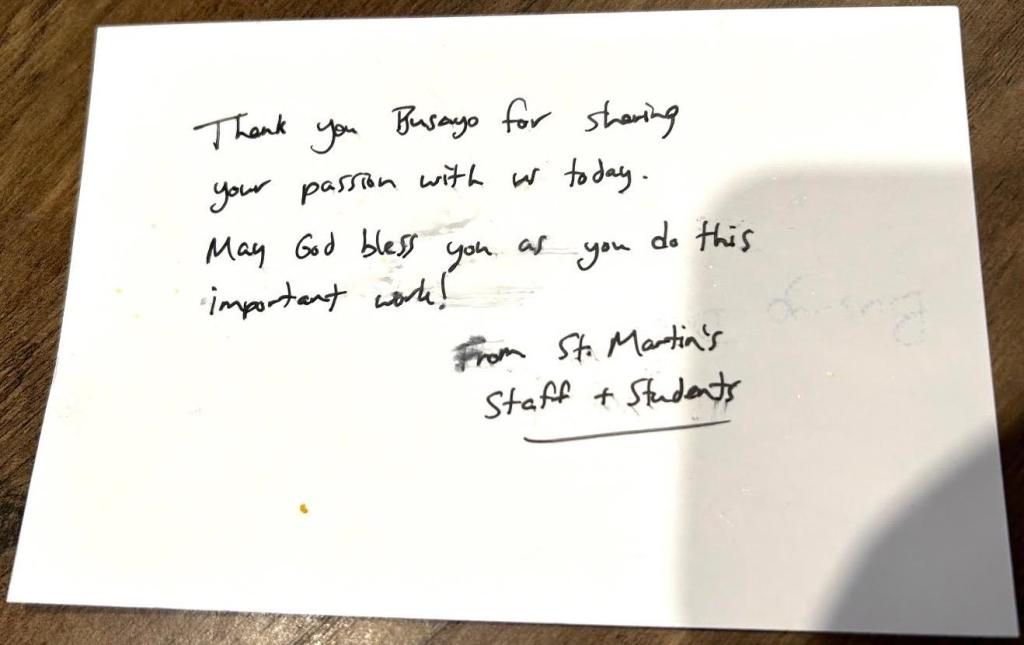 Thank you Busayo for sharing
your passion with us today.
May God bless you as you do this
important work!
From St. Martin's
Staff + Students